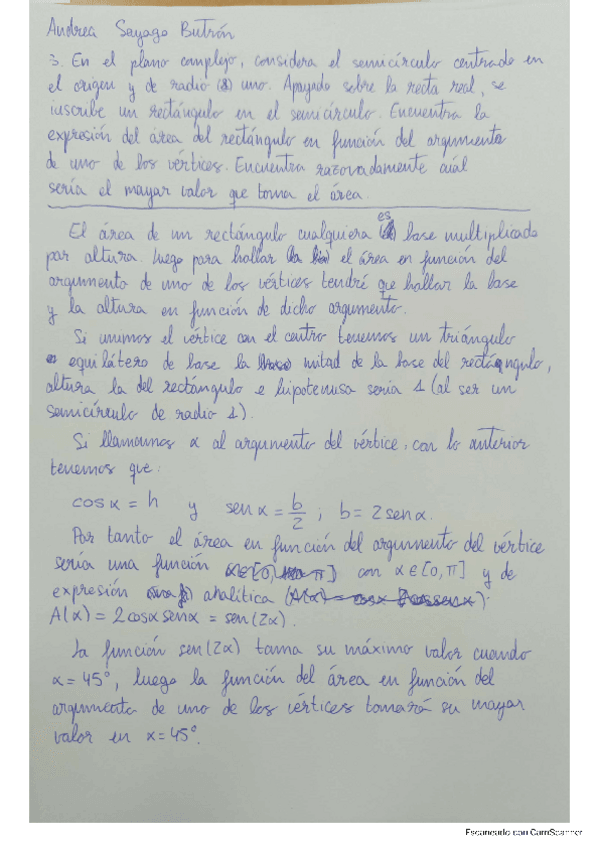 Andrea Sayago Butrón
3. En el plano complejo, considera el semicírculo centrado en
el origen y de radio uno. Apoyado sobre la recta real, se
inscribe un rectángulo en el semicírculo. Encuentra la
expresión del área del rectángulo en función del argumento
de uno de los vértices. Encuentra razonadamente cuál
sería el mayar valor que toma el área.
El área de un rectángulo cualquiera es base multiplicado
por altura. Luego para hallar el área en función del
argumento de uno de los vértices tendré que hallar la base
y la altura en función de dicho argumento.
Si unimos el vértice con el centro tenemos un triángulo
equilátero de base la mitad de la base del rectángulo,
altura la del rectángulo e hipotenusa seria 1 (al ser un
semicírculo de radio 1).
Si llamamos α al argumento del vértice, con lo anterior
tenemos que:
cos α = h y sen α = b/2 ; b = 2 sen α.
Por tanto el área en función del argumento del vértice
sería una función con α∈[0,π] y de
expresión analítica:
A(α) = 2cosα senα = sen(2α).
La función sen(2α) toma su máximo valor cuando
α = 45°, luego la función del área en función del
argumento de uno de los vértices tomará su mayar
valor en α = 45°.
Escaneado con CamScanner